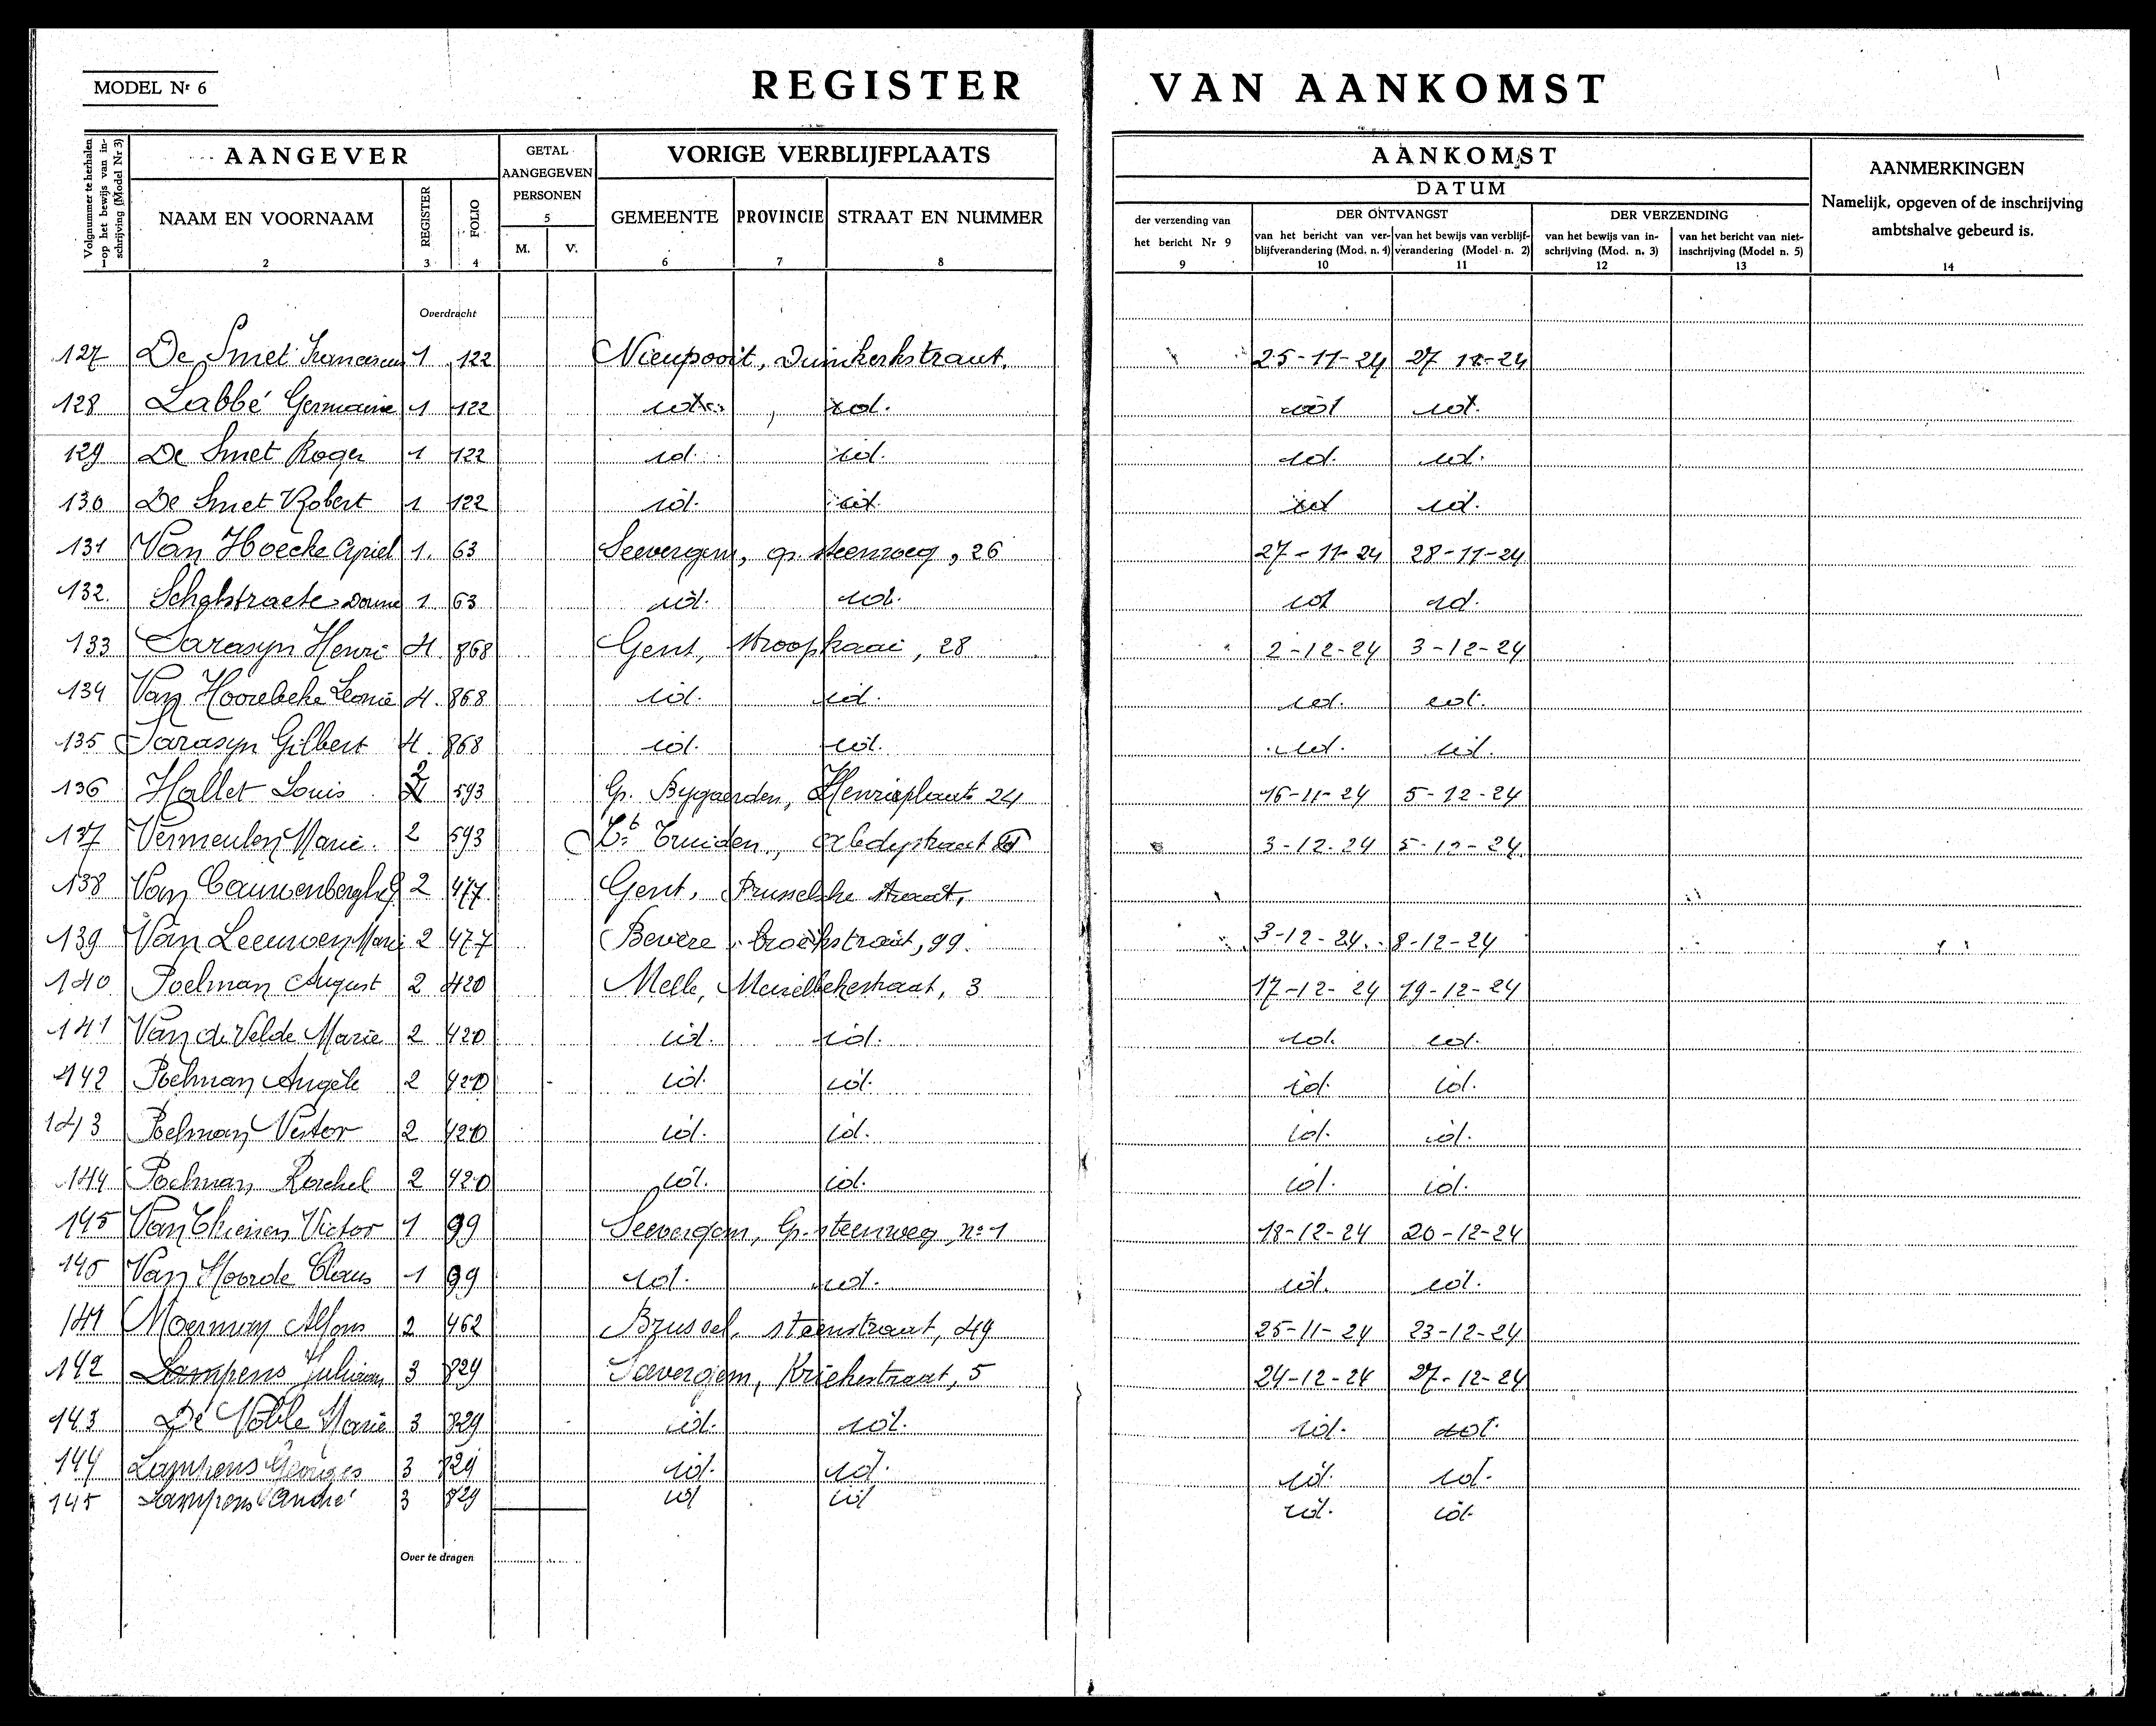 MODEL Nr 6
REGISTER VAN AANKOMST
Volgnummer te herhalen op het bewijs van inschrijving (Model Nr 3)
AANGEVER
GETAL AANGEGEVEN PERSONEN
VORIGE VERBLIJFPLAATS
AANKOMST
DATUM
AANMERKINGEN
Namelijk, opgeven of de inschrijving ambtshalve gebeurd is.
NAAM EN VOORNAAM REGISTER FOLIO 5 M. V. GEMEENTE PROVINCIE STRAAT EN NUMMER
der verzending van het bericht Nr 9
DER ONTVANGST
DER VERZENDING
van het bericht van verblijfverandering (Mod. n. 4) van het bewijs van verblijfverandering (Model n. 2) van het bewijs van inschrijving (Mod. n. 3) van het bericht van niet-inschrijving (Model n. 5)
1 2 3 4 6 7 8 9 10 11 12 13 14
Overdracht
127 De Smet Franciscus 1 122 Nieupoort, Duinkerkstraat. 25-11-24 27 11-24
128 Labbé Germaine 1 122 id. id. id id.
129 De Smet Roger 1 122 id. id. id. id.
130 De Smet Robert 1 122 id. id. id id.
131 Van Hoecke 1. 63 Seevergem, gr. steenweg, 26 27-11-24 28-11-24
132. 1 63 id. id. id id.
133 Sarasyn Henri 4 868 Gent, Stroopkaai, 28 2-12-24 3-12-24
134 Van Hoorebeke Leonie 4. 868 id. id. id. id.
135 Sarasyn Gilbert 4. 868 id. id. id. id.
136 Hallet Louis 2 593 Gr. Bygaerden, Henriaplaats 24 16-11-24 5-12-24
137 Vermeulen Marie. 2 593 St Truiden, 3-12-24 5-12-24
138 Van Cauwenberghe 2 477 Gent, Brusselsche straat,
139 Van Leeuwen Marie 2 477 Bevere, broekstraat, 99. 3-12-24. 8-12-24
140 Poelman August 2 420 Melle, Meirelbekestraat, 3 17-12-24 19-12-24
141 Van de Velde Marie 2 420 id. id. id. id.
142 Poelman Angèle 2 420 id. id. id. id.
143 Poelman Nestor 2 420 id. id. id. id.
144 Poelman Rachel 2 420 id. id. id. id.
145 Van Victor 1 99 Seevergem, Gr. steenweg, no 1 18-12-24 20-12-24
146 Van Hoorde 1 99 id. id. id. id.
141 Moerman Alfons 2 462 Brussel, steenstraat, 49 25-11-24 23-12-24
142 Lampens Juliaan 3 829 Savergem, Kriekestraat, 5 24-12-24 27-12-24
143 De Marie 3 829 id. id. id. id.
144 Lampens Georges 3 829 id. id. id. id.
145 Lampens André 3 829 id id id. id.
Over te dragen